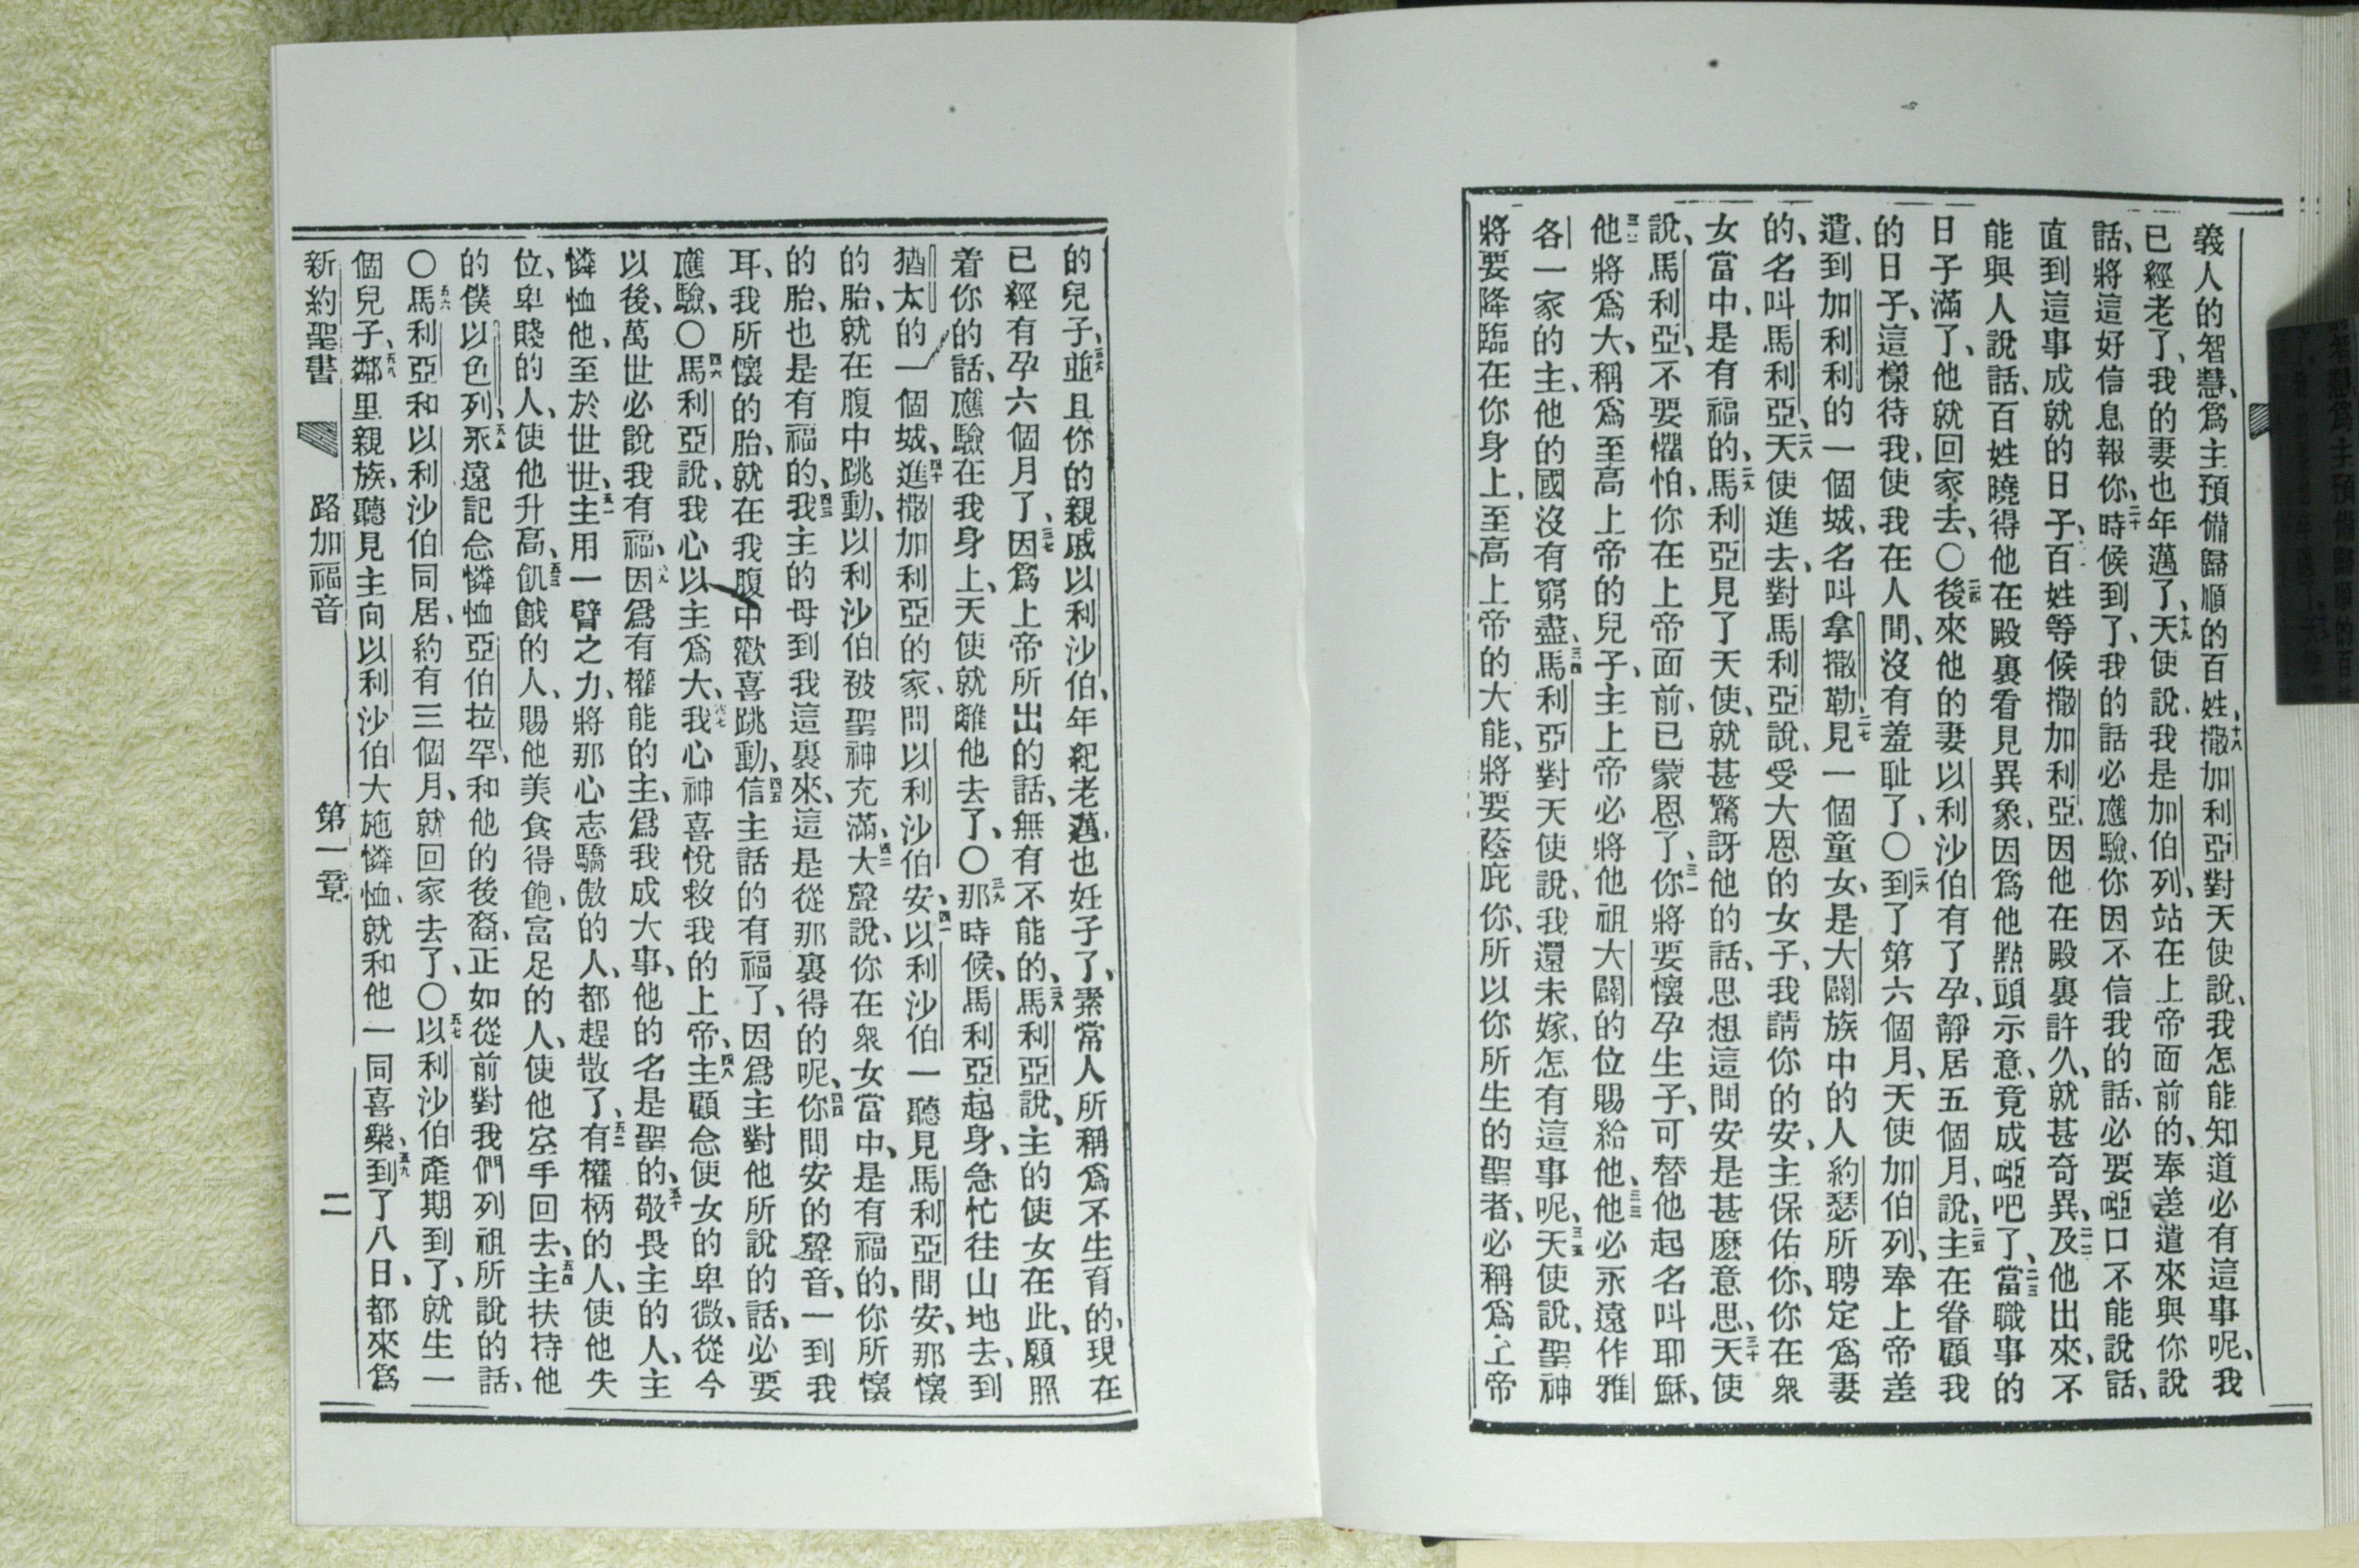 義人的智慧、爲主預備歸順的百姓、十八撒加利亞對天使說、我怎能知道必有這事呢、我
已經老了、我的妻也年邁了、十九天使說、我是加伯列、站在上帝面前的、奉差遣來與你說
話、將這好信息報你、二十時候到了、我的話必應驗、你因不信我的話、必要啞口不能說話、
直到這事成就的日子、百姓等候撒加利亞、因他在殿裏許久、就甚奇異、二二及他出來、不
能與人說話、百姓曉得他在殿裏看見異象、因爲他點頭示意、竟成啞吧了、二三當職事的
日子滿了、他就回家去、〇二四後來他的妻以利沙伯有了孕、靜居五個月、說、二五主在眷顧我
的日子、這樣待我、使我在人間、沒有羞耻了、〇二六到了第六個月、天使加伯列、奉上帝差
遣、到加利利的一個城、名叫拿撒勒、二七見一個童女、是大闢族中的人約瑟所聘定爲妻
的、名叫馬利亞、二八天使進去、對馬利亞說、受大恩的女子、我請你的安、主保佑你、你在衆
女當中、是有福的、二九馬利亞見了天使、就甚驚訝他的話、思想這問安是甚麽意思、三十天使
說、馬利亞、不要懼怕、你在上帝面前、已蒙恩了、三一你將要懷孕生子、可替他起名叫耶穌、
三二他將爲大、稱爲至高上帝的兒子、主上帝必將他祖大闢的位賜給他、三三他必永遠作雅
各一家的主、他的國沒有窮盡、三四馬利亞對天使說、我還未嫁、怎有這事呢、三五天使說、聖神
將要降臨在你身上、至高上帝的大能、將要蔭庇你、所以你所生的聖者、必稱爲上帝
的兒子、三六並且你的親戚以利沙伯、年紀老邁、也妊子了、素常人所稱爲不生育的、現在
已經有孕六個月了、三七因爲上帝所出的話、無有不能的、三八馬利亞說、主的使女在此、願照
着你的話、應驗在我身上、天使就離他去了、〇三九那時候、馬利亞起身、急忙往山地去、到
猶太的一個城、四十進撒加利亞的家、問以利沙伯安、四一以利沙伯一聽見馬利亞問安、那懷
的胎、就在腹中跳動、以利沙伯被聖神充滿、四二大聲說、你在衆女當中、是有福的、你所懷
的胎、也是有福的、四三我主的母到我這裏來、這是從那裏得的呢、四四你問安的聲音、一到我
耳、我所懷的胎、就在我腹中歡喜跳動、四五信主話的有福了、因爲主對他所說的話、必要
應驗、〇四六馬利亞說、我心以主爲大、四七我心神喜悅救我的上帝、四八主顧念使女的卑微、從今
以後、萬世必說我有福、四九因爲有權能的主、爲我成大事、他的名是聖的、五十敬畏主的人、主
憐恤他、至於世世、五一主用一臂之力、將那心志驕傲的人、都趕散了、五二有權柄的人、使他失
位、卑賤的人、使他升高、五三飢餓的人、賜他美食得飽、富足的人、使他空手回去、五四主扶持他
的僕以色列、五五永遠記念憐恤亞伯拉罕、和他的後裔、正如從前對我們列祖所說的話、
〇五六馬利亞和以利沙伯同居、約有三個月、就回家去了、〇五七以利沙伯產期到了、就生一
個兒子、五八鄰里親族、聽見主向以利沙伯大施憐恤、就和他一同喜樂、五九到了八日、都來爲
新約聖書 路加福音 第一章 二